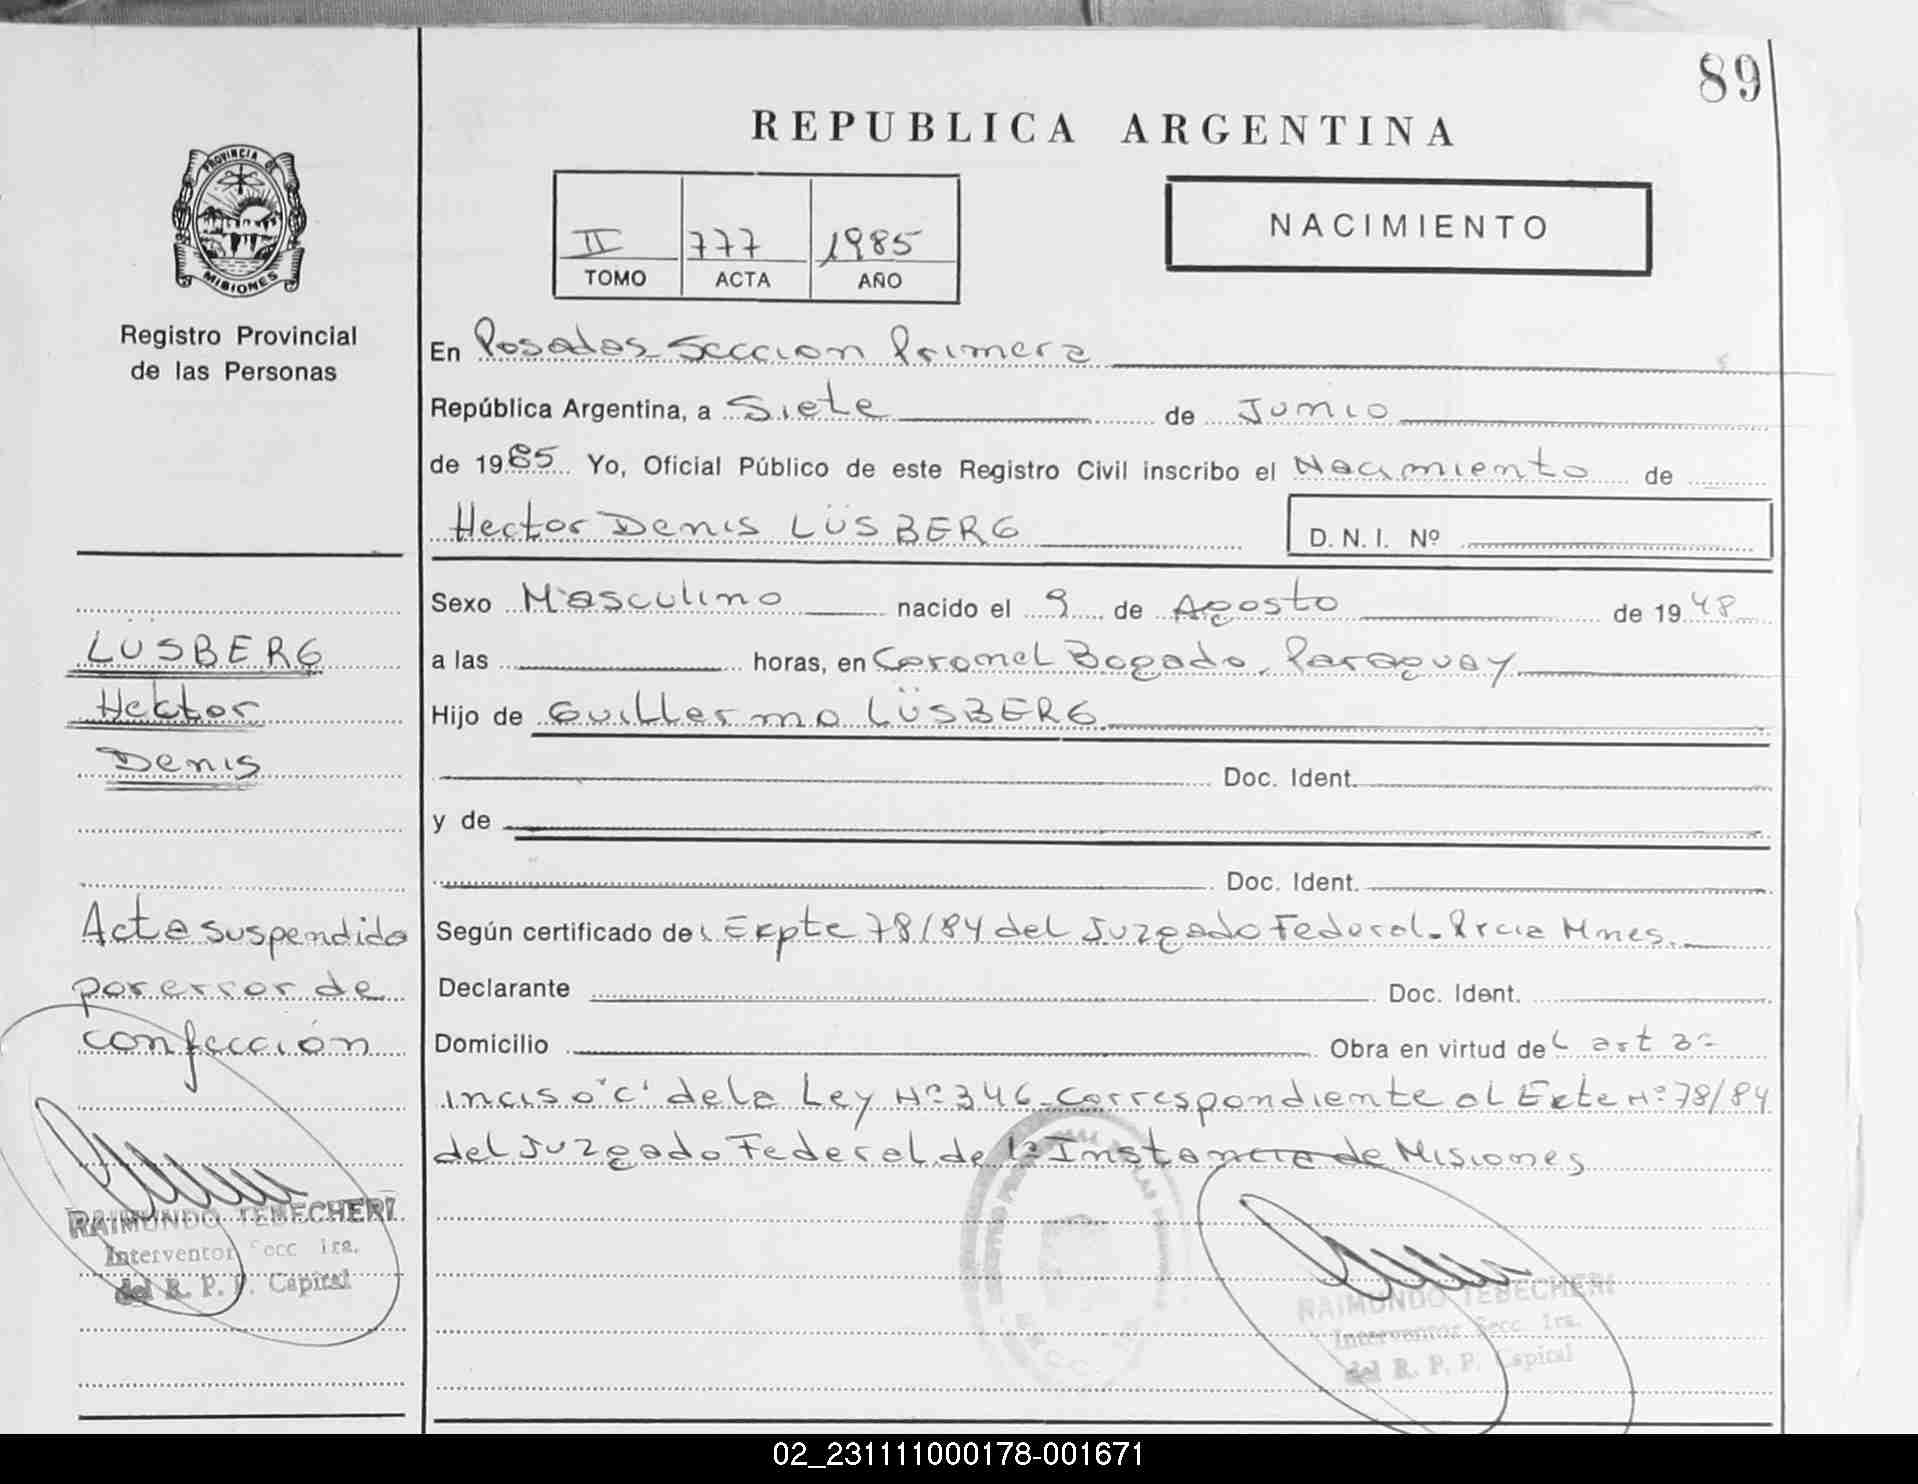 89
REPUBLICA ARGENTINA
PROVINCIA DE
MISIONES
II 777 1985
TOMO ACTA AÑO
NACIMIENTO
Registro Provincial
de las Personas
En Posadas Seccion Primera
República Argentina, a Siete de Junio
de 1985 Yo, Oficial Público de este Registro Civil inscribo el Nacimiento de
Hector Denis LÜSBERG
D. N. I. Nº
Sexo Masculino nacido el 9 de Agosto de 1948
a las horas, en Coronel Bogado, Paraguay
Hijo de Guillermo LÜSBERG
Doc. Ident.
y de
Doc. Ident.
Según certificado de Expte 78/84 del Juzgado Federal. Prcia Mnes.
Declarante Doc. Ident.
Domicilio Obra en virtud del art 2º
inciso "c" de la Ley Nº 346. Correspondiente al Exte Nº 78/84
del Juzgado Federal de 1ª Instancia de Misiones
LÜSBERG
Hector
Denis
Acta suspendida
por error de
confección
RAIMUNDO TEBECHERI
Interventor Secc 1ra.
del R. P. P. Capital
RAIMUNDO TEBECHERI
Interventor Secc. 1ra.
del R. P. P. Capital
02_231111000178-001671